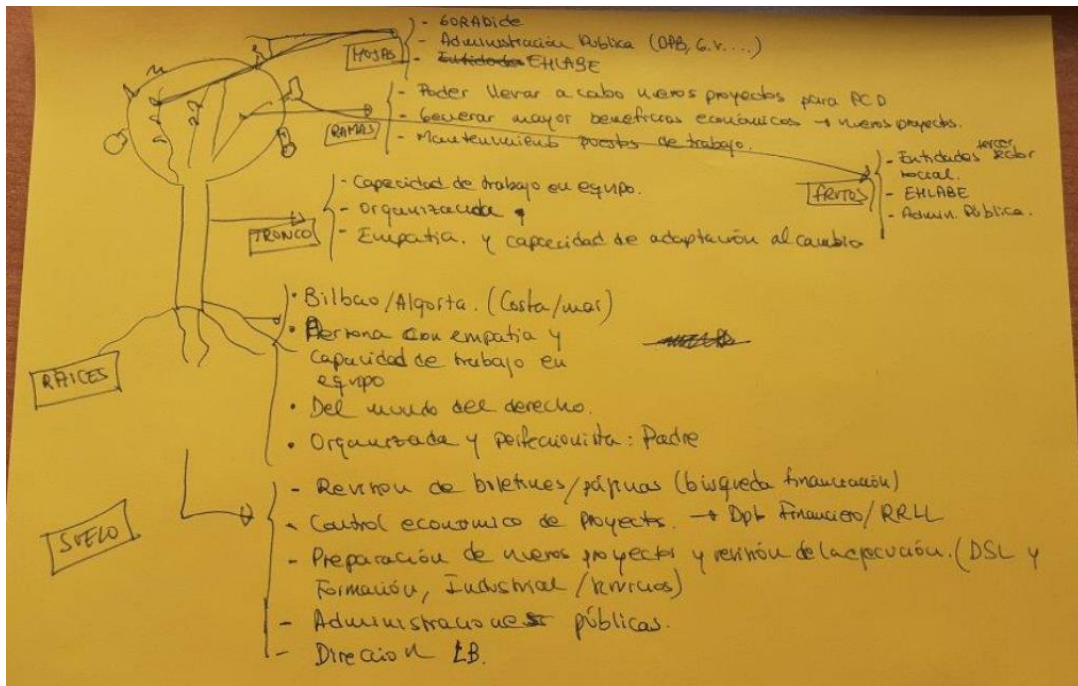 HOJAS
- GORABIDE
- Administración Publica (DPB, G.V. ....)
- Entidades EHLABE
RAMAS
- Poder llevar a cabo nuevos proyectos para PCD
- Generar mayor beneficios económicos → nuevos proyectos.
- Mantenimiento puestos de trabajo.
FRUTOS
- Entidades tercer sector
social.
- EHLABE
- Admin. Pública.
TRONCO
- Capacidad de trabajo en equipo.
- Organizada
- Empatia. y capacidad de adaptación al cambio
RAICES
• Bilbao/Algorta. (Costa/mar)
• Persona con empatia y
capacidad de trabajo en
equipo
• Del mundo del derecho.
• Organizada y perfecionista: Padre
SUELO
- Revision de boletines/páginas (búsqueda financiación)
- Control economico de proyectos. → Dpto Financiero/RRLL
- Preparación de nuevos proyectos y revisión de la ejecución. (DSL y
Formación, Industrial/servicios)
- Administraciones públicas.
- Direccion LB.